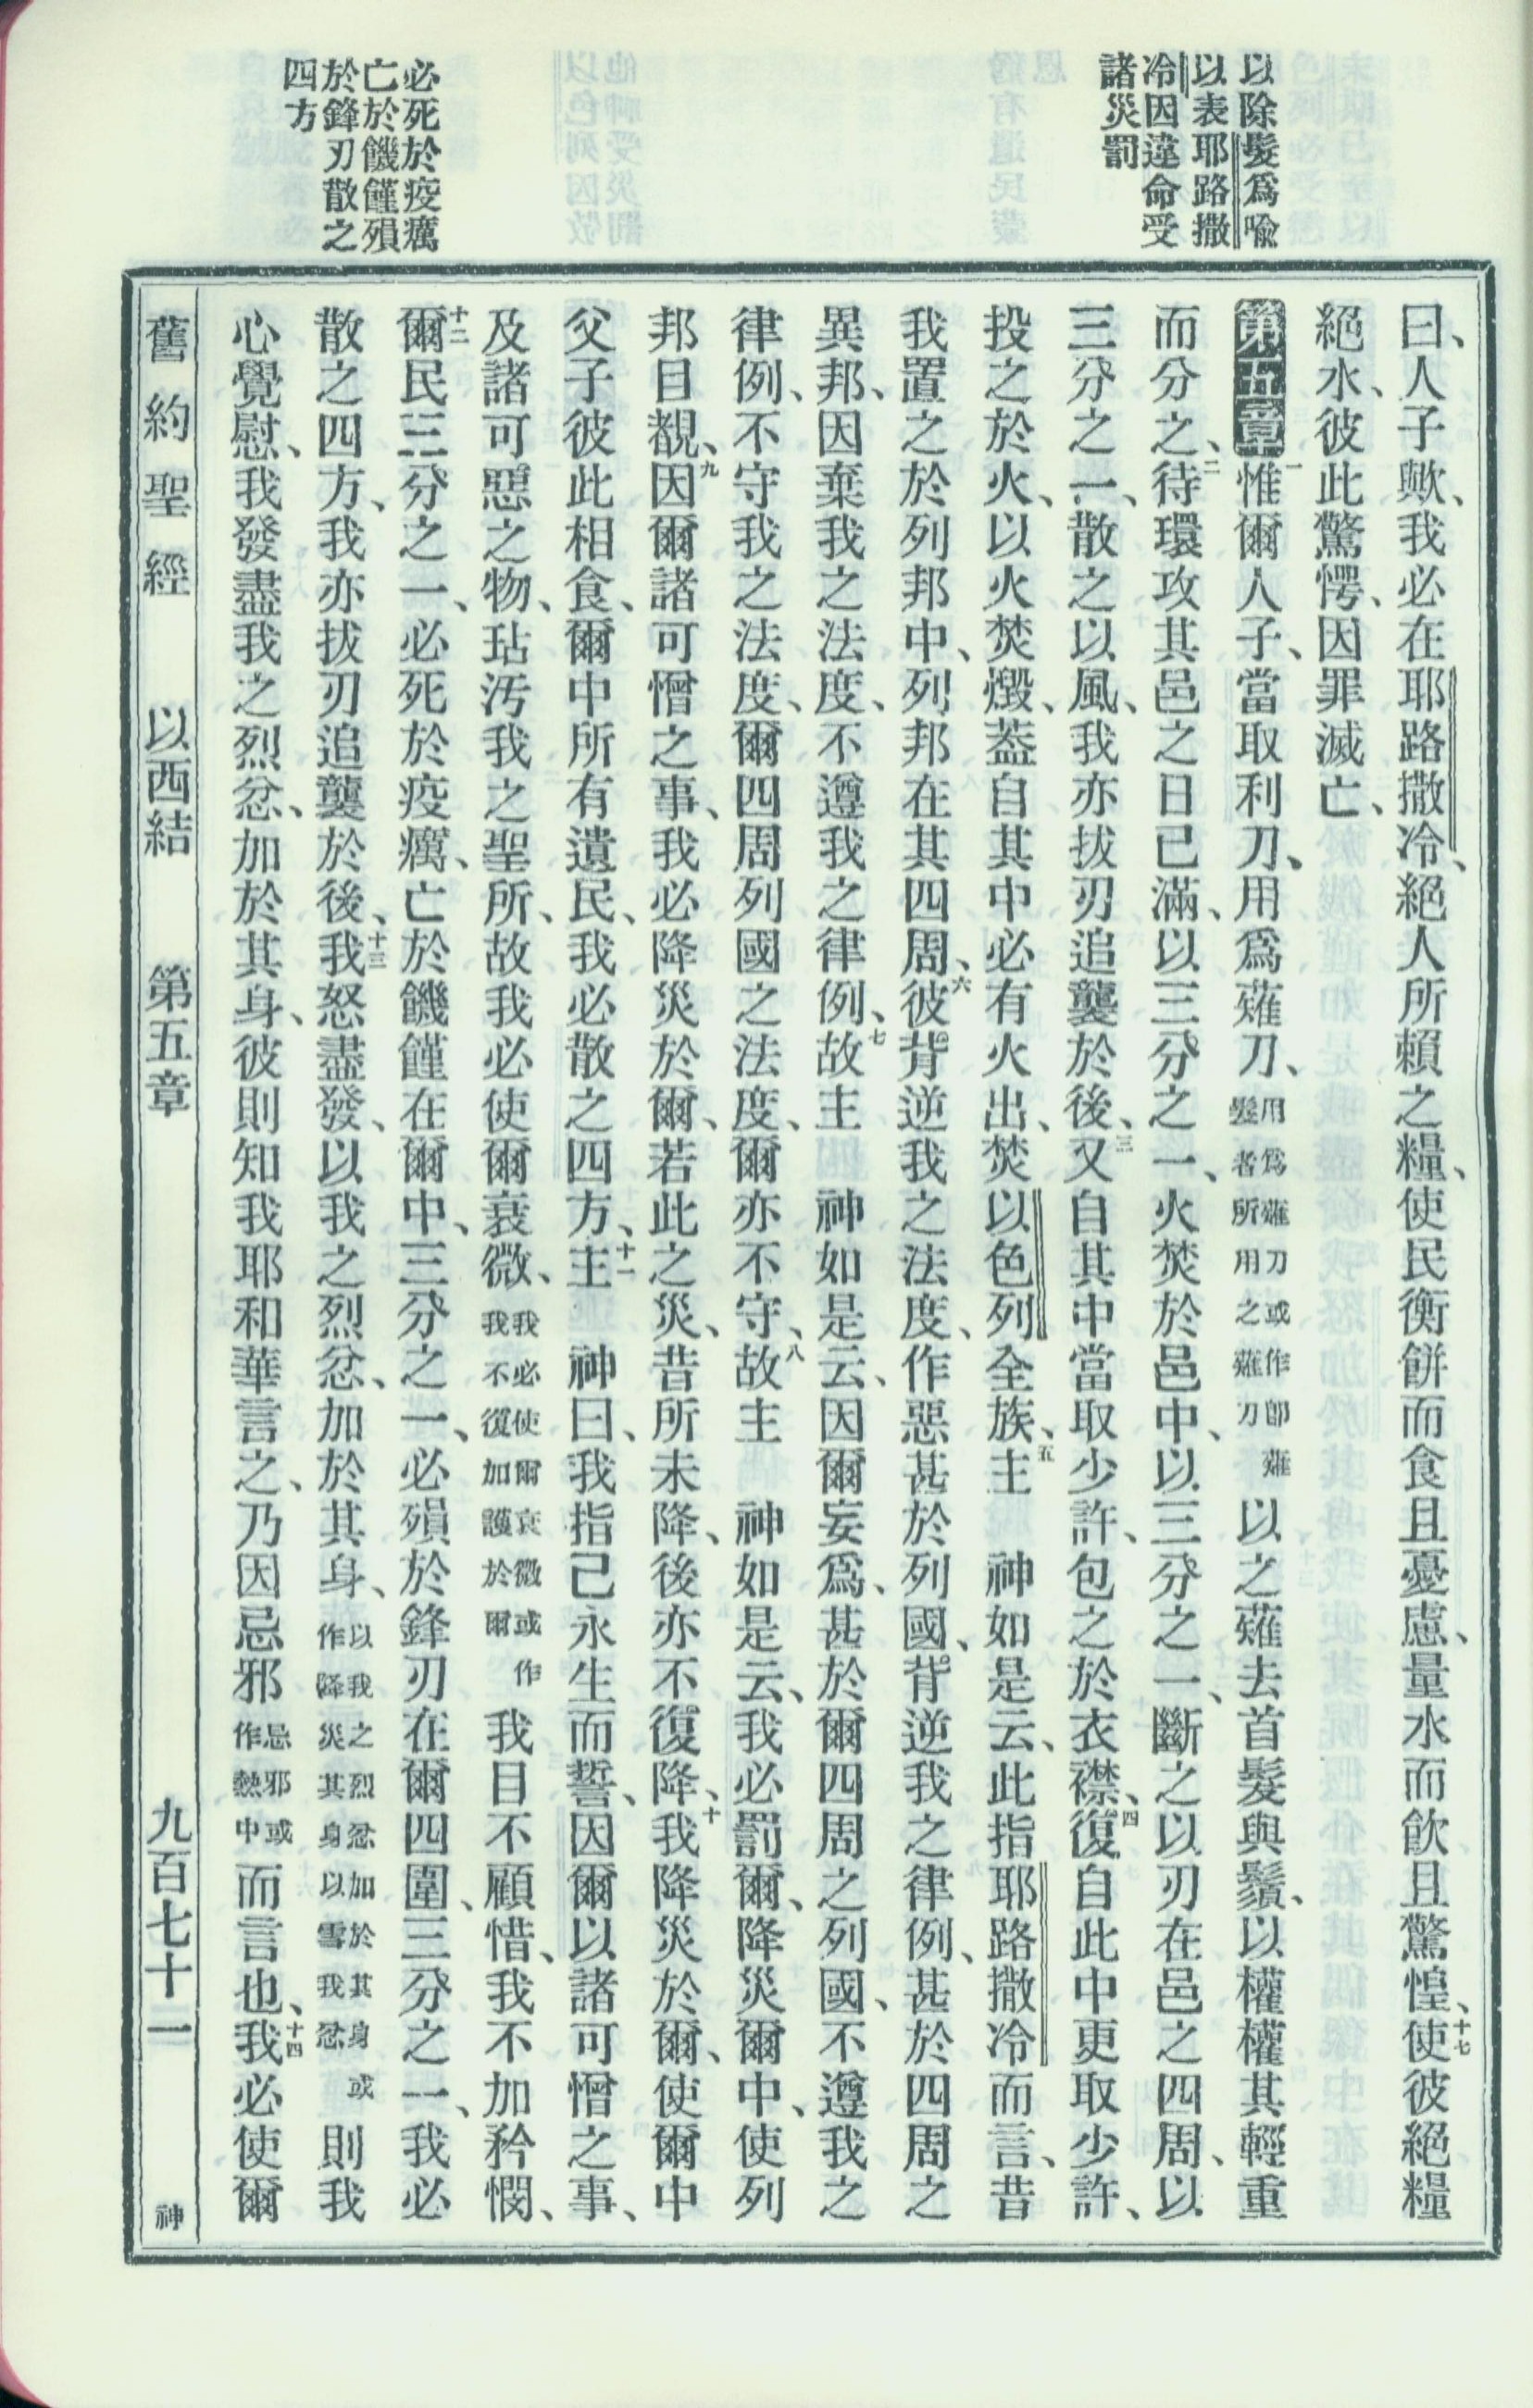 以除髮爲喩
以表耶路撒
冷因違命受
諸災罰
必死於疫癘
亡於饑饉殞
於鋒刃散之
四方
曰、人子歟、我必在耶路撒冷、絕人所賴之糧、使民衡餅而食且憂慮、量水而飲且驚惶、十七使彼絕糧
絕水、彼此驚愕、因罪滅亡、
第五章 一惟爾人子、當取利刀、用爲薙刀、用爲薙刀或作卽薙髮者所用之薙刀以之薙去首髮與鬚、以權權其輕重
而分之、二待環攻其邑之日已滿、以三分之一、火焚於邑中、以三分之一、斷之以刃在邑之四周、以
三分之一、散之以風、我亦拔刃追襲於後、三又自其中當取少許、包之於衣襟、四復自此中更取少許、
投之於火、以火焚燬、葢自其中必有火出、焚以色列全族、五主 神如是云、此指耶路撒冷而言、昔
我置之於列邦中、列邦在其四周、六彼背逆我之法度、作惡甚於列國、背逆我之律例、甚於四周之
異邦、因棄我之法度、不遵我之律例、七故主 神如是云、因爾妄爲、甚於爾四周之列國、不遵我之
律例、不守我之法度、爾四周列國之法度、爾亦不守、八故主 神如是云、我必罰爾、降災爾中、使列
邦目覩、九因爾諸可憎之事、我必降災於爾、若此之災、昔所未降、後亦不復降、十我降災於爾、使爾中
父子彼此相食、爾中所有遺民、我必散之四方、十一主 神曰、我指己永生而誓、因爾以諸可憎之事、
及諸可惡之物、玷汚我之聖所、故我必使爾衰微、我必使爾衰微或作我不復加護於爾我目不顧惜、我不加矜憫、
十二爾民三分之一、必死於疫癘、亡於饑饉在爾中、三分之一、必殞於鋒刃在爾四圍、三分之一、我必
散之四方、我亦拔刃追襲於後、十三我怒盡發、以我之烈忿、加於其身、以我之烈忿加於其身或作降災其身以雪我忿則我
心覺慰、我發盡我之烈忿、加於其身、彼則知我耶和華言之、乃因忌邪忌邪或作熱中而言也、十四我必使爾
舊約聖經 以西結 第五章 九百七十一 神